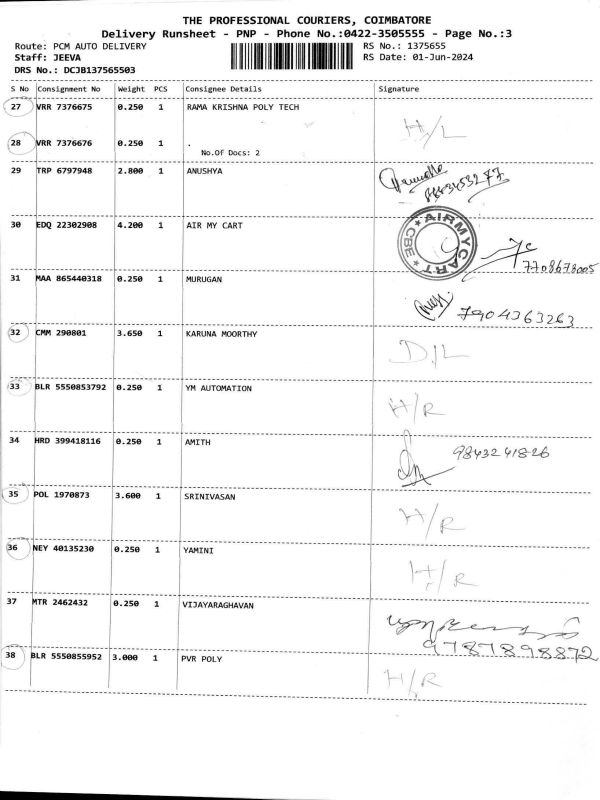 THE PROFESSIONAL COURIERS, COIMBATORE
Delivery Runsheet - PNP - Phone No.:0422-3505555 - Page No.:3
Route: PCM AUTO DELIVERY RS No.: 1375655
Staff: JEEVA RS Date: 01-Jun-2024
DRS No.: DCJB137565503
S No Consignment No Weight PCS Consignee Details Signature
27 VRR 7376675 0.250 1 RAMA KRISHNA POLY TECH
H/L
28 VRR 7376676 0.250 1 .
No.Of Docs: 2
29 TRP 6797948 2.800 1 ANUSHYA
30 EDQ 22302908 4.200 1 AIR MY CART
AIRMYCART CBE
7708678005
31 MAA 865440318 0.250 1 MURUGAN
7904363263
32 CMM 290801 3.650 1 KARUNA MOORTHY
D/L
33 BLR 5550853792 0.250 1 YM AUTOMATION
H/R
34 HRD 399418116 0.250 1 AMITH
9843241826
35 POL 1970873 3.600 1 SRINIVASAN
H/R
36 NEY 40135230 0.250 1 YAMINI
H/R
37 MTR 2462432 0.250 1 VIJAYARAGHAVAN
9787898872
38 BLR 5550855952 3.000 1 PVR POLY
H/R